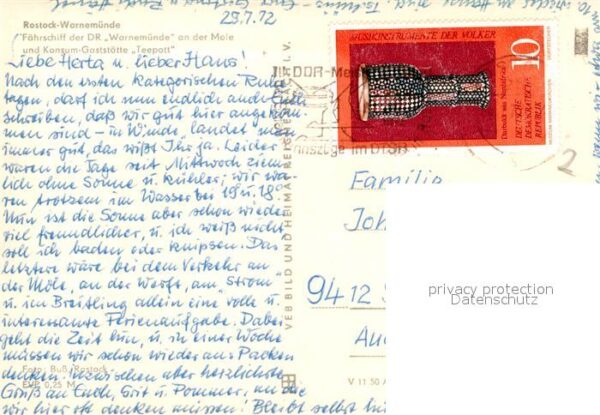 29.7.72
Rostock-Warnemünde
Fährschiff der DR „Warnemünde" an der Mole
und Konsum-Gaststätte „Teepott"
Liebe Herta u. lieber Hans!
Nach den ersten kategorischen Ruhe-
tagen, darf ich nun endlich auch Euch
schreiben, daß wir gut hier angekom-
men sind – in W'münde, landet man
immer gut, das wißt Ihr ja. Leider
waren die Tage seit Mittwoch ziem-
lich ohne Sonne u. kühler; wir wa-
ren trotzdem im Wasser bei 19 u. 18°.
Nun ist die Sonne aber schon wieder
viel freundlicher, u. ich weiß nicht
soll ich baden oder knipsen. Das
letztere wäre bei dem Verkehr an
der Mole, an der Werft, am „Strom"
u. im Breitling allein eine volle u.
interessante Ferienaufgabe. Dabei
geht die Zeit hin, u. in einer Woche
müssen wir schon wieder ans Packen
denken. Inzwischen aber herzlichste
Grüß an Euch, Grit u. Pommer, an die
wir hier oft denken müssen! Bleibt selbst
Foto: Buß, Rostock
EVP 0,25 M
VEB BILD UND HEIMAT REICHENBACH I. V.
V 11 50 A
DDR-Me
im DTSB
MUSIKINSTRUMENTE DER VÖLKER
10
DEUTSCHE
DEMOKRATISCHE
REPUBLIK
2
Familie
Joh
9412 S
Au
privacy protection
Datenschutz